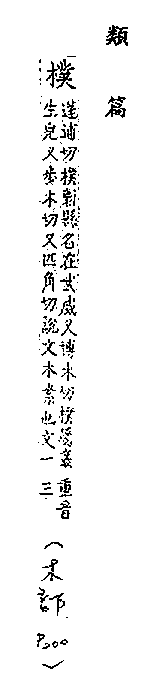 類篇
樸
蓬逋切樸䣕縣名在武威又博木切樸屬叢
生皃又步木切又匹角切說文木素也文一 重音三
(木部 P200)